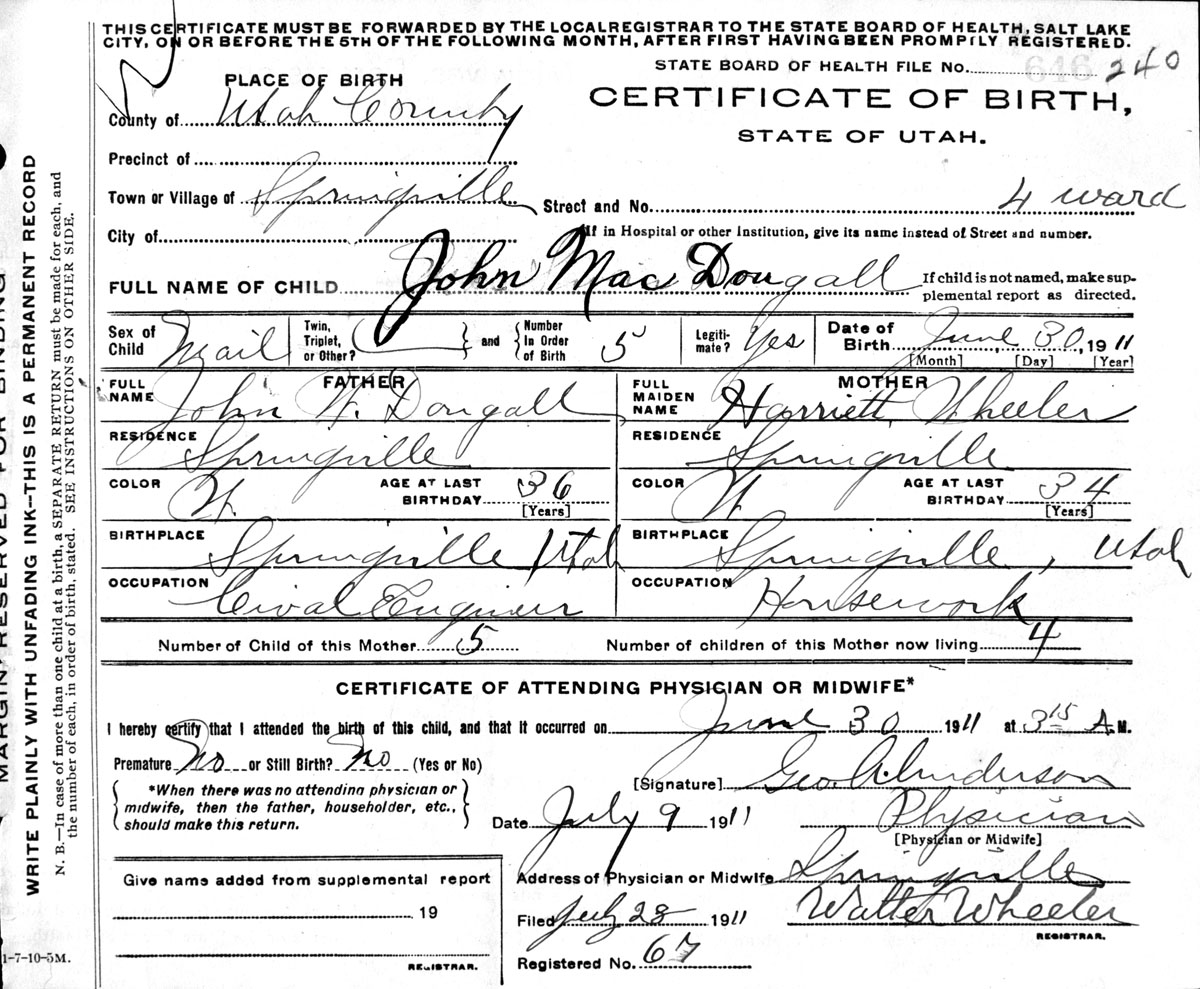 THIS CERTIFICATE MUST BE FORWARDED BY THE LOCAL REGISTRAR TO THE STATE BOARD OF HEALTH, SALT LAKE
CITY, ON OR BEFORE THE 5TH OF THE FOLLOWING MONTH, AFTER FIRST HAVING BEEN PROMPTLY REGISTERED.
STATE BOARD OF HEALTH FILE No. 646 240
PLACE OF BIRTH
CERTIFICATE OF BIRTH,
STATE OF UTAH.
County of Utah County
Precinct of
Town or Village of Springville
Street and No. 4 ward
City of
If in Hospital or other Institution, give its name instead of Street and number.
FULL NAME OF CHILD John Mac Dougall
If child is not named, make sup-
plemental report as directed.
Sex of Child Mail
Twin, Triplet, or Other?
and
Number In Order of Birth 5
Legiti- mate? Yes
Date of Birth June 30, 1911
[Month] [Day] [Year]
FATHER
FULL NAME John W. Dougall
MOTHER
FULL MAIDEN NAME Harriett Wheeler
RESIDENCE Springville
RESIDENCE Springville
COLOR W. AGE AT LAST BIRTHDAY 36
[Years]
COLOR W. AGE AT LAST BIRTHDAY 34
[Years]
BIRTHPLACE Springville Utah
BIRTHPLACE Springville, Utah
OCCUPATION Cival Enginier
OCCUPATION Housework
Number of Child of this Mother 5
Number of children of this Mother now living 4
CERTIFICATE OF ATTENDING PHYSICIAN OR MIDWIFE*
I hereby certify that I attended the birth of this child, and that it occurred on June 30 1911 at 3 15 A.M.
Premature No or Still Birth? No (Yes or No)
[Signature] Geo. A. Anderson
*When there was no attending physician or
midwife, then the father, householder, etc.,
should make this return.
Date July 9 1911
Physician
[Physician or Midwife]
Give name added from supplemental report
19
REGISTRAR.
Address of Physician or Midwife Springville
Filed July 28 1911 Walter Wheeler
REGISTRAR.
Registered No. 67
1-7-10-5M.
MARGIN RESERVED FOR BINDING
WRITE PLAINLY WITH UNFADING INK—THIS IS A PERMANENT RECORD
N. B.—In case of more than one child at a birth, a SEPARATE RETURN must be made for each, and
the number of each, in order of birth, stated. SEE INSTRUCTIONS ON OTHER SIDE.